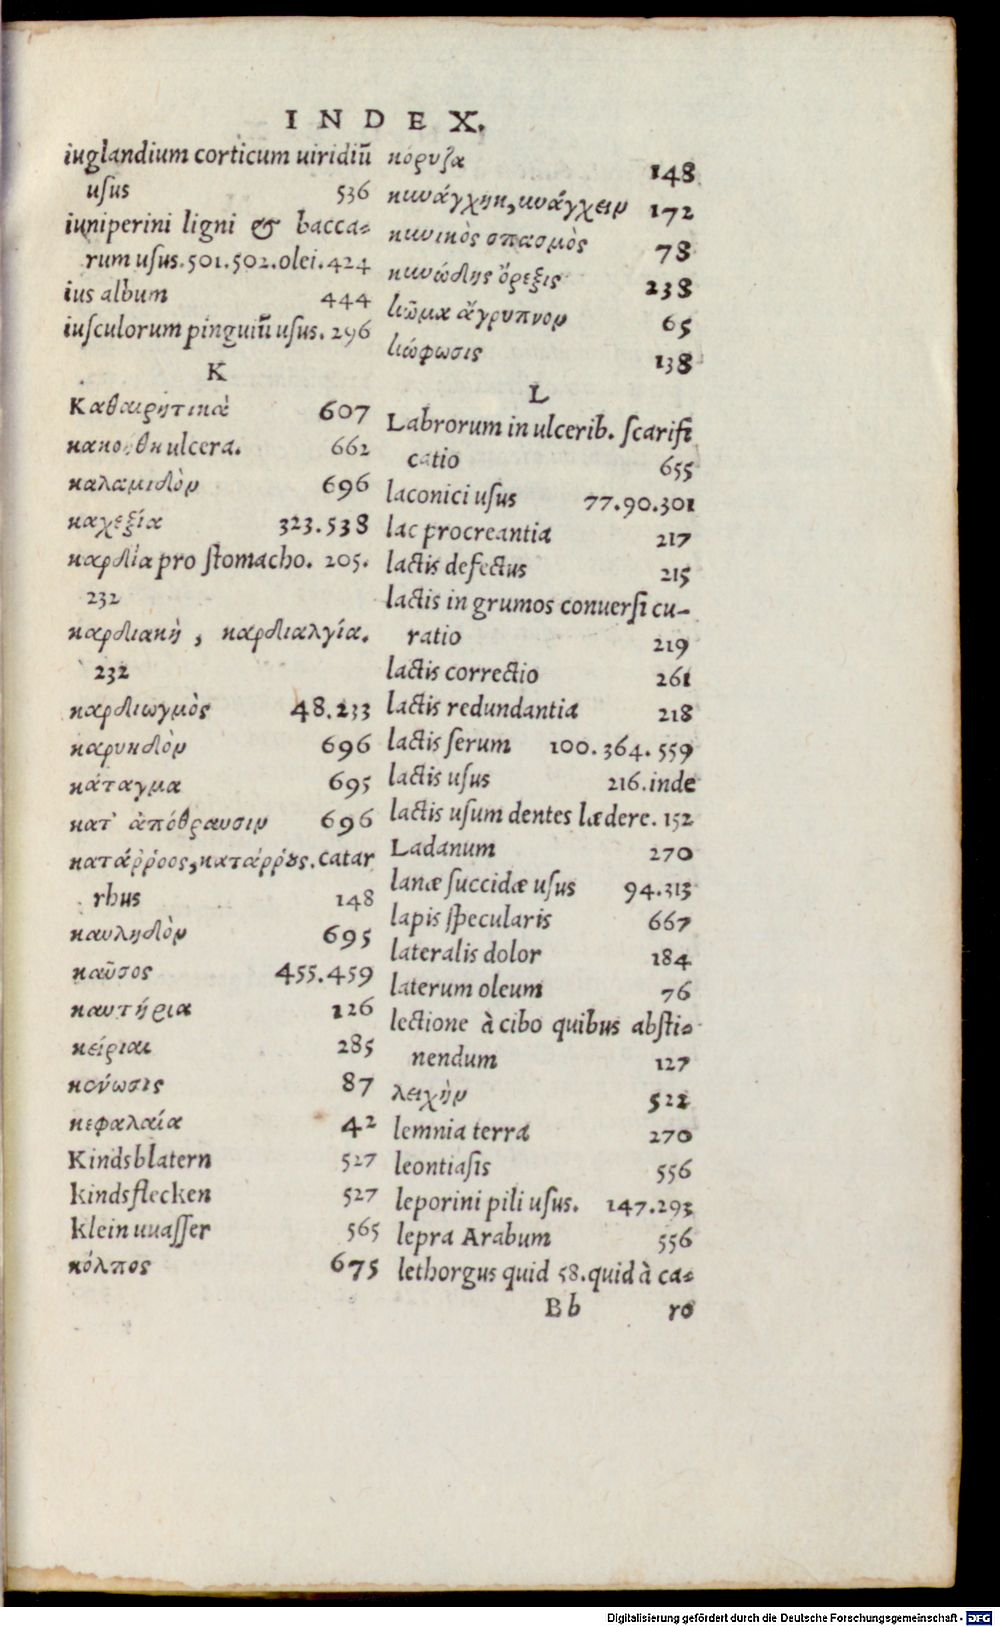 INDEX.
iuglandium corticum uiridiū
usus 536
iuniperini ligni & bacca-
rum usus. 501. 502. olei. 424
ius album 444
iusculorum pinguiū usus. 296
K
Καθαιρητικὰ 607
ulcera. 662
καλαμιδὸν 696
καχεξία 323. 538
καρδία pro stomacho. 205.
232
καρδιακὴ, καρδιαλγία.
232
καρδιωγμὸς 48. 233
καρυκδὸν 696
κάταγμα 695
κατ' ἀπόθραυσιν 696
κατάῤῥοος, κατάῤῥȣς. catar
rhus 148
καυληδὸν 695
καῦσος 455. 459
καυτήρια 126
κείριαι 285
κενώσις 87
κεφαλαία 42
Kindsblatern 527
kindsflecken 527
klein uuasser 565
κόλπος 675
κόρυζα 148
κυνάγχην, κυνάγχειν 172
κυνικὸς σπασμὸς 78
κυνώδης ὄρεξις 238
κῶμα ἄγρυπνον 65
κώφωσις 138
L
Labrorum in ulcerib. scarifi
catio 655
laconici usus 77. 90. 301
lac procreantia 217
lactis defectus 215
lactis in grumos conuersi cu-
ratio 219
lactis correctio 261
lactis redundantia 218
lactis serum 100. 364. 559
lactis usus 216. inde
lactis usum dentes lædere. 152
Ladanum 270
lanæ succidæ usus 94. 313
lapis specularis 667
lateralis dolor 184
laterum oleum 76
lectione à cibo quibus absti-
nendum 127
λειχὴν 522
lemnia terra 270
leontiasis 556
leporini pili usus. 147. 293
lepra Arabum 556
lethorgus quid 58. quid à ca-
Bb ro
Digitalisierung gefördert durch die Deutsche Forschungsgemeinschaft - DFG